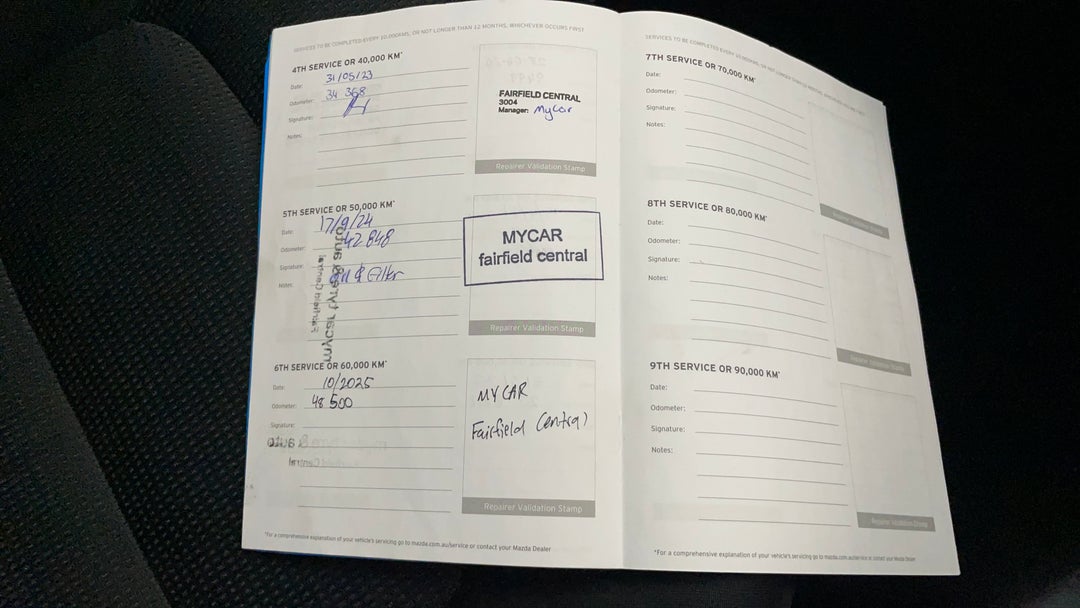 SERVICES TO BE COMPLETED EVERY 10,000KMS, OR NOT LONGER THAN 12 MONTHS, WHICHEVER OCCURS FIRST
4TH SERVICE OR 40,000 KM*
Date: 31/05/23
Odometer: 34 368
Signature:
Notes:
FAIRFIELD CENTRAL
3004
Manager: Mycar
Repairer Validation Stamp
5TH SERVICE OR 50,000 KM*
Date: 17/9/24
Odometer: 42 848
Signature:
Notes: Oil & Filter
MYCAR
fairfield central
Repairer Validation Stamp
6TH SERVICE OR 60,000 KM*
Date: 10/2025
Odometer: 48 500
Signature:
MYCAR
Fairfield Central
Repairer Validation Stamp
*For a comprehensive explanation of your vehicle's servicing go to mazda.com.au/service or contact your Mazda Dealer
7TH SERVICE OR 70,000 KM*
Date:
Odometer:
Signature:
Notes:
Repairer Validation Stamp
8TH SERVICE OR 80,000 KM*
Date:
Odometer:
Signature:
Notes:
Repairer Validation Stamp
9TH SERVICE OR 90,000 KM*
Date:
Odometer:
Signature:
Notes:
Repairer Validation Stamp
*For a comprehensive explanation of your vehicle's servicing go to mazda.com.au/service or contact your Mazda Dealer